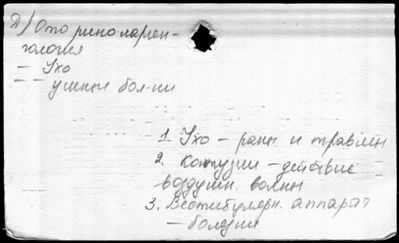 2) Оториноларен-
гология
— Ухо
— — ушные бол-ни
1. Ухо — раны и травмы
2. Контузии — действие
воздушн. волны
3. Вестибулярн. аппарат
— болезни